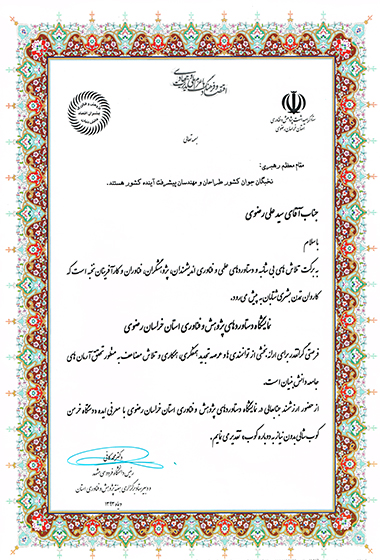 اقتصاد و فرهنگ با عزم ملی و مدیریت جهادی
ستاد گرامیداشت پژوهش و فناوری
استان خراسان رضوی
بسمه تعالی
مقام معظم رهبری:
نخبگان جوان کشور طراحان و مهندسان پیشرفت آینده کشور هستند.
جناب آقای سید علی رضوی
باسلام
به برکت تلاش های بی شائبه و دستاوردهای علمی و فناوری اندیشمندان، پژوهشگران، فناوران و کارآفرینان نخبه است که
کاروان تمدن بشری شتابان به پیش می رود.
نمایشگاه دستاوردهای پژوهش و فناوری استان خراسان رضوی
فرصتی گرانقدر برای ارائه بخشی از توانمندی ها و عرصه تجدید همفکری، همکاری و تلاش مضاعف به منظور تحقق آرمان های
جامعه دانش بنیان است.
از حضور ارزشمند جنابعالی در نمایشگاه دستاوردهای پژوهش و فناوری استان خراسان رضوی با معرفی ایده «دستگاه خرمن
کوب شالی بدون نیاز به دوباره کوب» تقدیر می نمایم.
دکتر محمد کافی
رئیس دانشگاه فردوسی مشهد
و دبیر ستاد برگزاری هفته پژوهش و فناوری استان
دیماه ۱۳۹۳